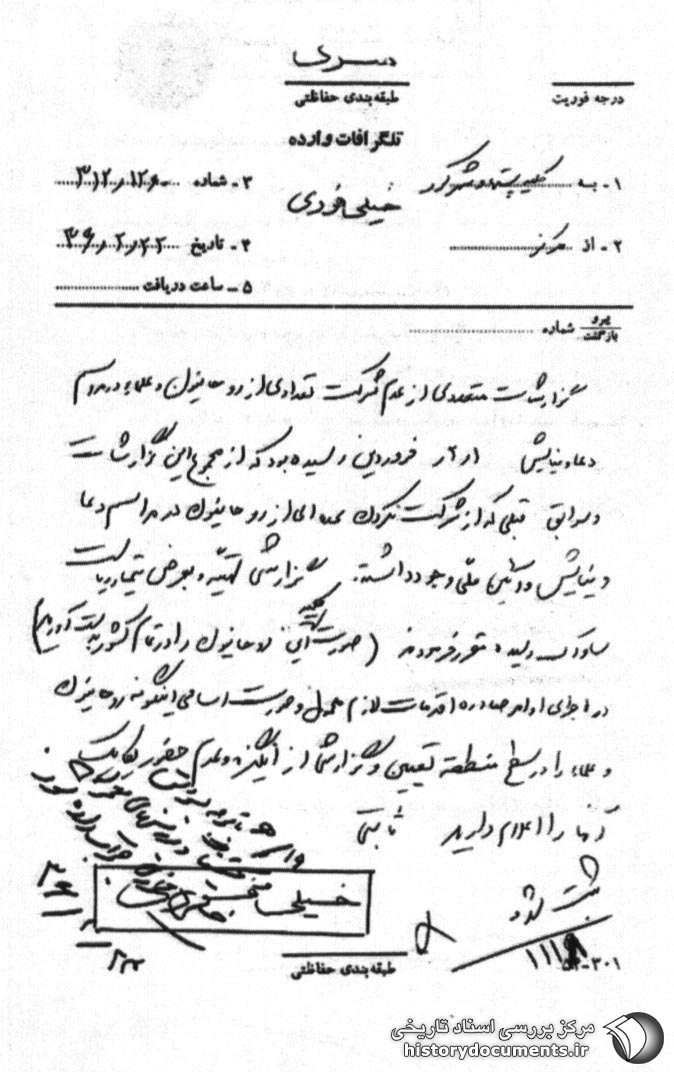 سری
طبقه‌بندی حفاظتی
درجه فوریت
تلگرافات وارده
۱ - به شهرکرد
۳ - شماره ۳۱۲٫۱۲۶۰
خیلی فوری
۲ - از مرکز
۴ - تاریخ ۳۶٫۲٫۲۲
۵ - ساعت دریافت
پیرو
بازگشت
شماره
گزارشات متعددی از عدم شرکت تعدادی از روحانیون و علماء در مراسم
دعا و نیایش فروردین رسیده بود که از مجموع این گزارشات
و سوابق قبلی که از شرکت نکردن عده‌ای از روحانیون در مراسم دعا
و نیایش و ملی وجود داشته گزارشی تهیه و بعرض تیمسار ریاست
ساواک رسیده مقرر فرمودند (صورت این روحانیون را در تمام کشور بدست آورید)
در اجرای اوامر صادره اقدامات لازم معمول و صورت اسامی اینگونه روحانیون
و علماء را در سطح منطقه تعیین و گزارشی از انگیزه و عدم حضور یکایک
آنها را اعلام دارید ثابتی
خیلی
ثبت شد
۱۱۱۹۸
۳۶/۲/۲۳
طبقه‌بندی حفاظتی
۳۰۱-۵۲
مرکز بررسی اسناد تاریخی
historydocuments.ir